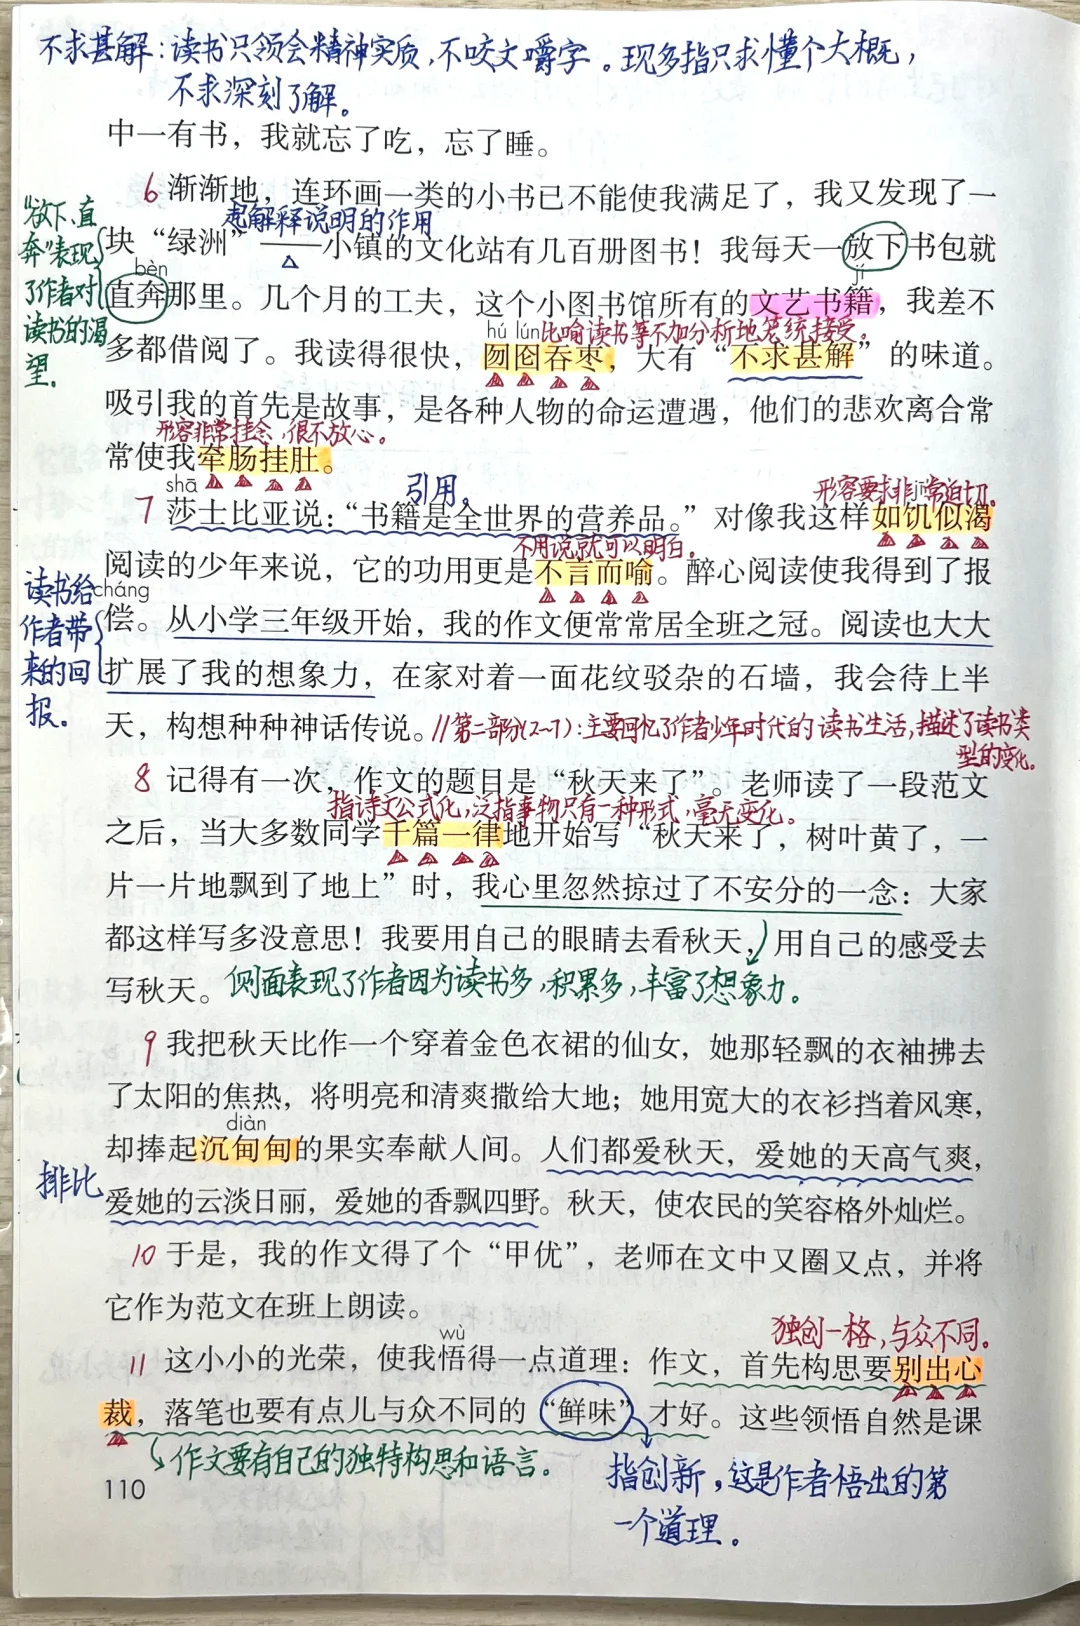 不求甚解：读书只领会精神实质，不咬文嚼字。现多指只求懂个大概，
不求深刻了解。
中一有书，我就忘了吃，忘了睡。
6 渐渐地，连环画一类的小书已不能使我满足了，我又发现了一
起解释说明的作用
块“绿洲”——小镇的文化站有几百册图书！我每天一放下书包就
“放下、直
奔”表现
了作者对
读书的渴
望。
bèn
jí
直奔那里。几个月的工夫，这个小图书馆所有的文艺书籍，我差不
hú lún
比喻读书等不加分析地笼统接受。
多都借阅了。我读得很快，囫囵吞枣，大有“不求甚解”的味道。
吸引我的首先是故事，是各种人物的命运遭遇，他们的悲欢离合常
形容非常挂念，很不放心。
常使我牵肠挂肚。
shā
引用。
形容要求非常迫切。
jī
7 莎士比亚说：“书籍是全世界的营养品。”对像我这样如饥似渴
不用说就可以明白。
阅读的少年来说，它的功用更是不言而喻。醉心阅读使我得到了报
cháng
读书给
作者带
来的回
报。
偿。从小学三年级开始，我的作文便常常居全班之冠。阅读也大大
扩展了我的想象力，在家对着一面花纹驳杂的石墙，我会待上半
天，构想种种神话传说。
//第二部分(2—7)：主要回忆了作者少年时代的读书生活，描述了读书类
型的变化。
8 记得有一次，作文的题目是“秋天来了”。老师读了一段范文
指诗文公式化，泛指事物只有一种形式，毫无变化。
之后，当大多数同学千篇一律地开始写“秋天来了，树叶黄了，一
片一片地飘到了地上”时，我心里忽然掠过了不安分的一念：大家
都这样写多没意思！我要用自己的眼睛去看秋天，用自己的感受去
写秋天。
侧面表现了作者因为读书多，积累多，丰富了想象力。
9 我把秋天比作一个穿着金色衣裙的仙女，她那轻飘的衣袖拂去
了太阳的焦热，将明亮和清爽撒给大地；她用宽大的衣衫挡着风寒，
diàn
却捧起沉甸甸的果实奉献人间。人们都爱秋天，爱她的天高气爽，
排比
爱她的云淡日丽，爱她的香飘四野。秋天，使农民的笑容格外灿烂。
10 于是，我的作文得了个“甲优”，老师在文中又圈又点，并将
它作为范文在班上朗读。
wù
独创一格，与众不同。
11 这小小的光荣，使我悟得一点道理：作文，首先构思要别出心
裁，落笔也要有点儿与众不同的“鲜味”才好。这些领悟自然是课
作文要有自己的独特构思和语言。
指创新，这是作者悟出的第
一个道理。
110